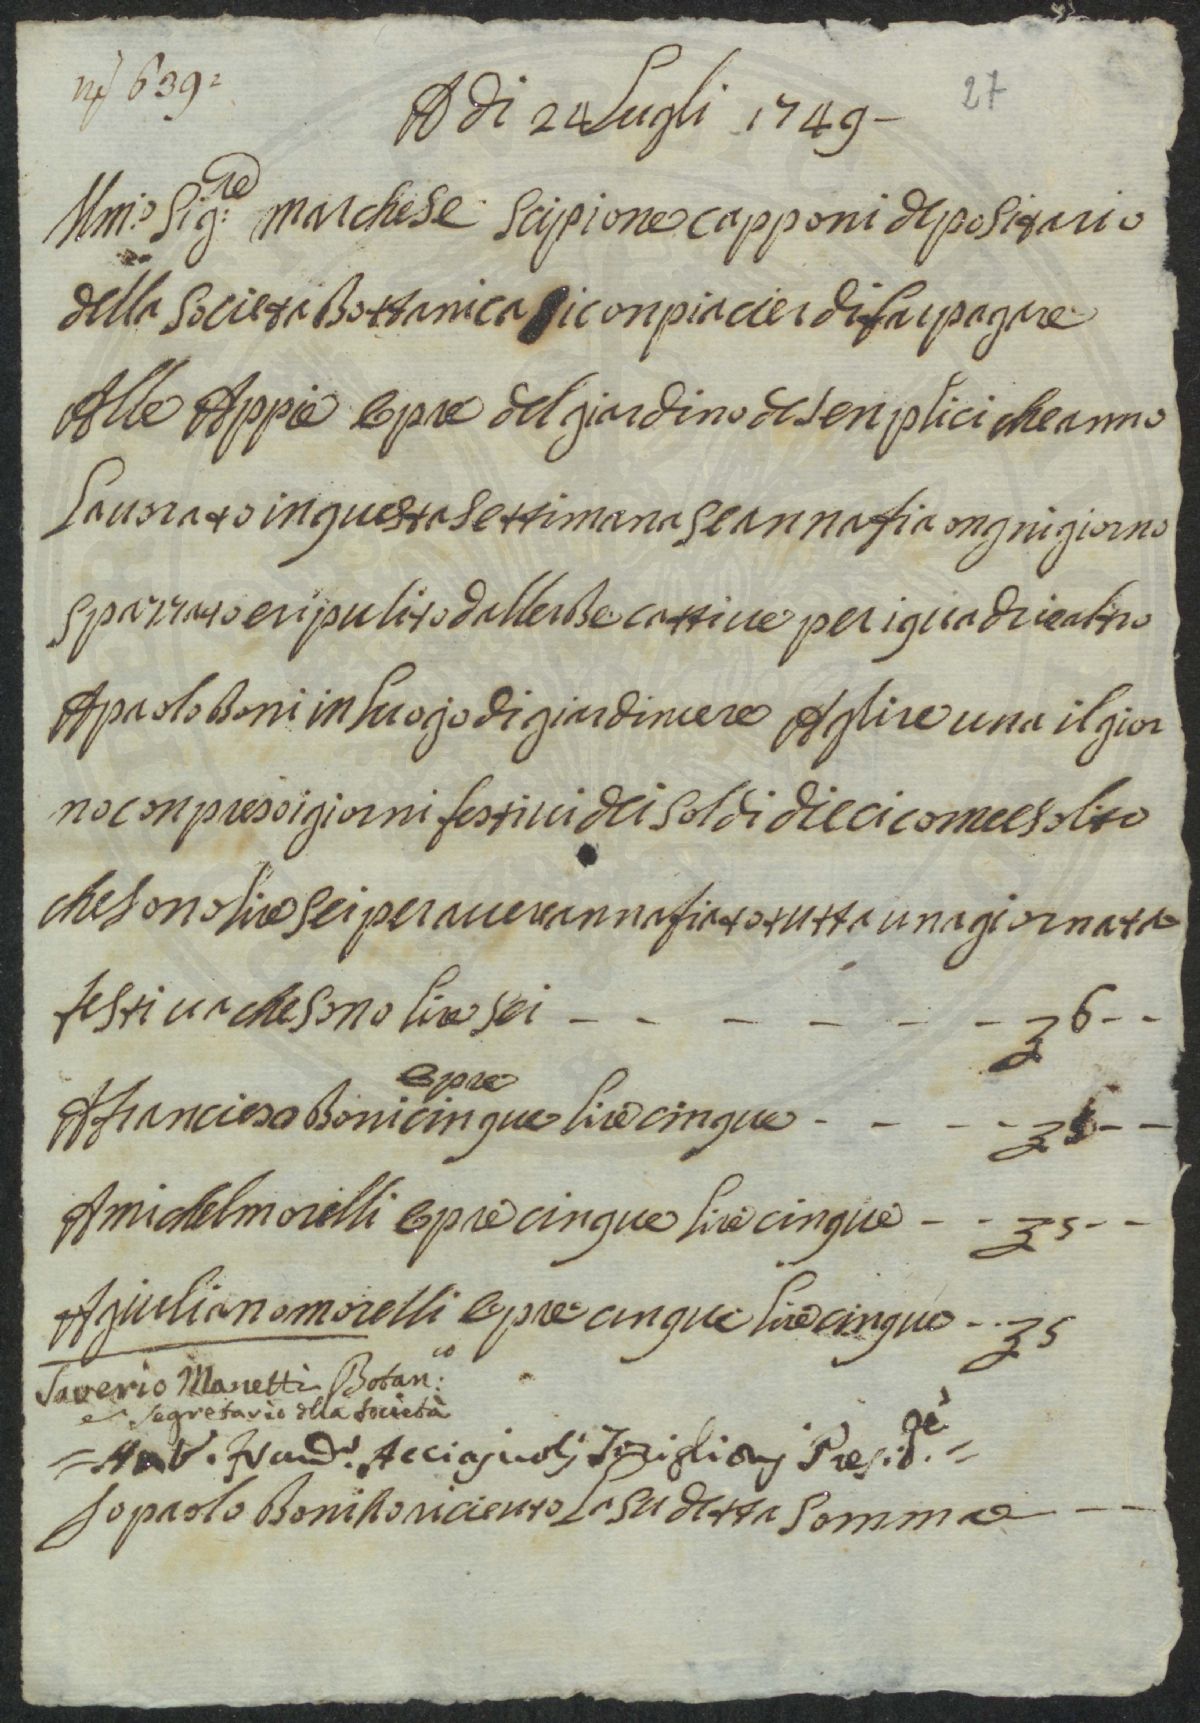 n.º 639=
27
A di 24 Lugli 1749 -
Illmio Sig:re marchese scipione capponi depositario
della Societa Bottanica si conpiacier di far pagare
Alle Appie epre del giardino de senplici che anno
Lauorato in questa Settimana Se annafia ongni giorno
spazzato e ripulito dallerbe cattiue per i quadri e altro
A paolo Boni in luogo di giardiniere A glire una il gior
no conpreso i giorni festiui dei soldi dieci come e solito
che sono lire sei per auere annafiato tutta una giornata
festiua che sono lire sei - - - - - - 6 - -
epre
A francieso Boni cinque lire cinque - - - - 5 - -
A michel morelli epre cinque lire cinque - - 5 - -
A giuliano morelli epre cinque lire cinque - - 5
Saverio Manetti Botan:co
e Segretario della Società
= And. Acciajuoli Presid.te =
Jo paolo Boni ho riceuto La su detta Somma - -